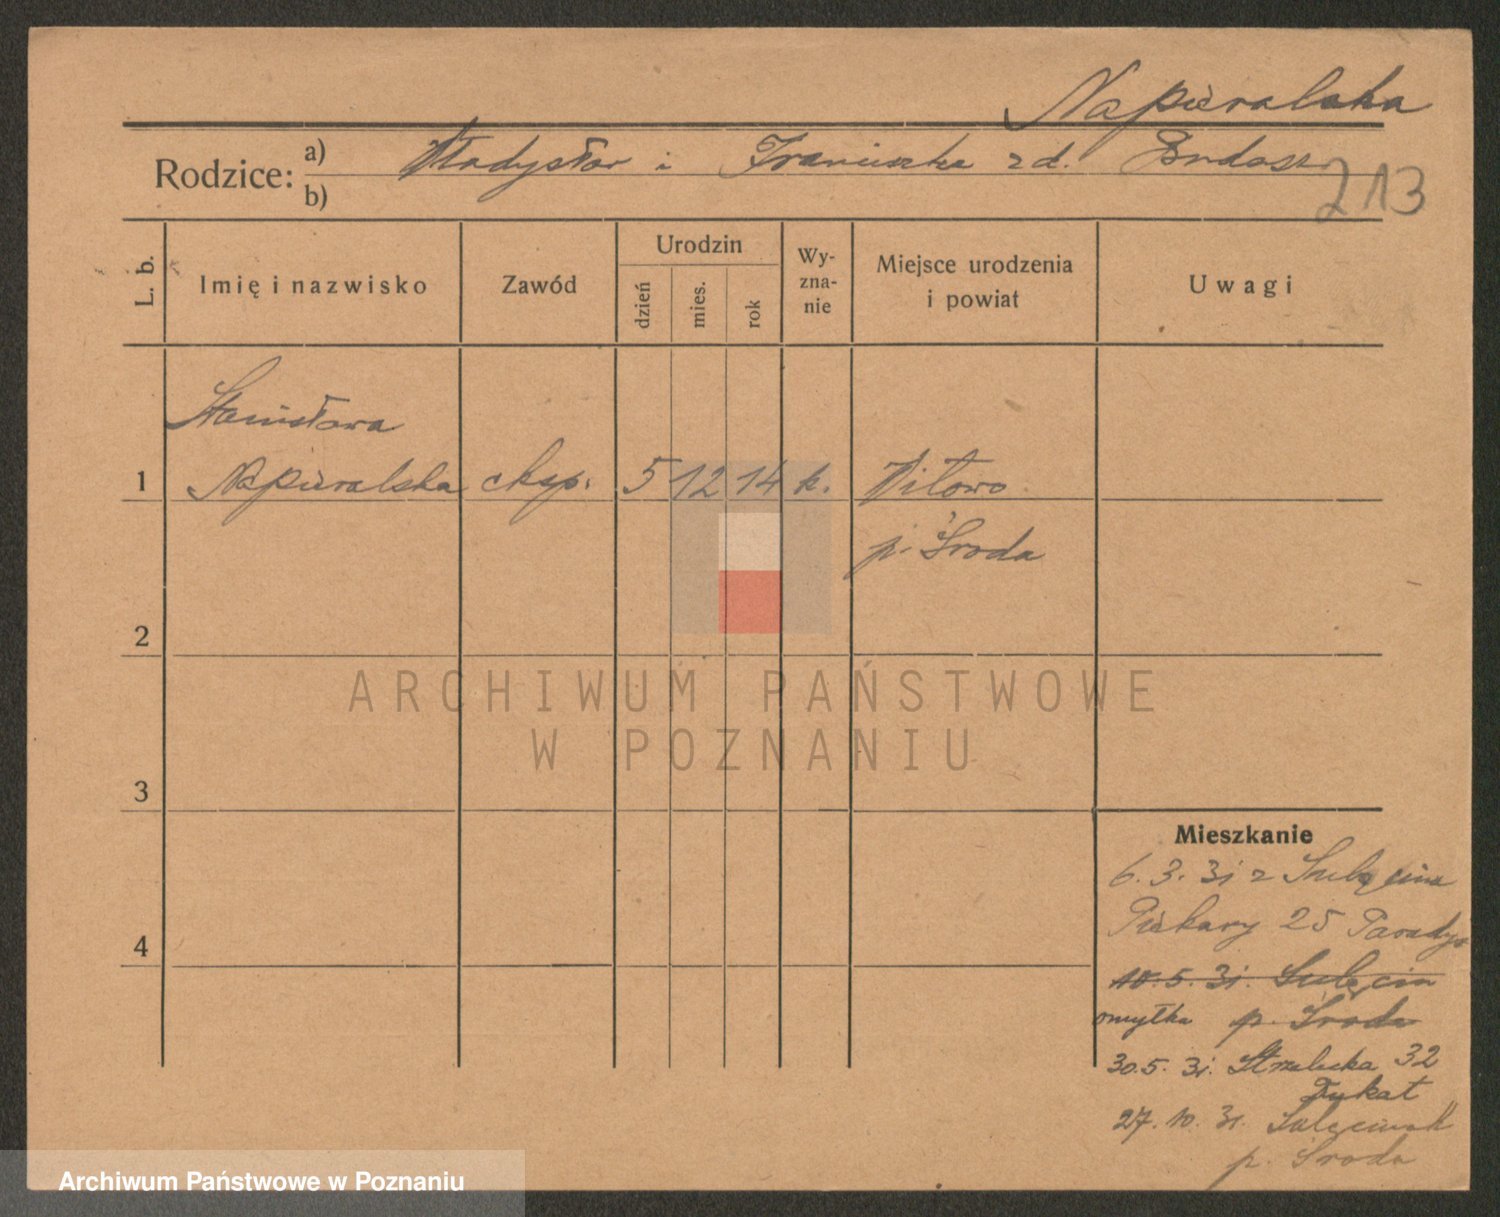 Napieralska
Rodzice: a) Władysław i Franciszka z d.
b)
213
L. b.
Imię i nazwisko
Zawód
Urodzin
dzień
mies.
rok
Wy-
zna-
nie
Miejsce urodzenia
i powiat
Uwagi
Stanisława
1 Napieralska eksp. 5 12 14 k. Witowo
p. Środa
2
3
4
ARCHIWUM PAŃSTWOWE
W POZNANIU
Mieszkanie
6. 3. 31 z
Piekary 25
10. 5. 31. Sulęcin
omyłka p. Środa
30. 5. 31. Strzelecka 32
27. 10. 31.
p. Środa
Archiwum Państwowe w Poznaniu